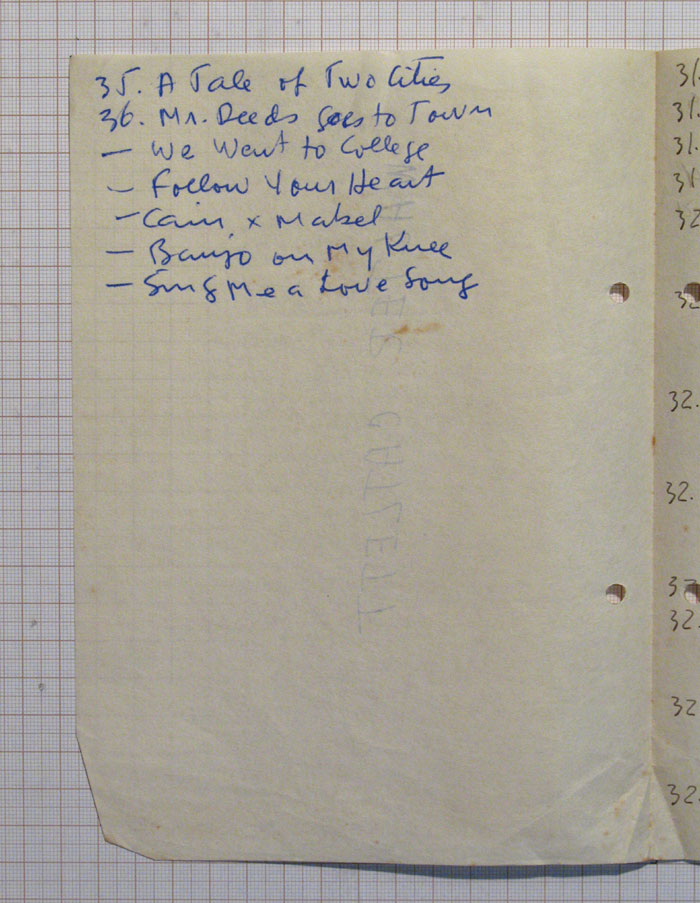 35. A Tale of Two Cities
36. Mr. Deeds Goes to Town
— We Went to College
— Follow Your Heart
— Cain x Mabel
— Banjo on My Knee
— Sing Me a Love Song
31.
31.
31.
31
32
32
32.
32.
32
32.
32
32.